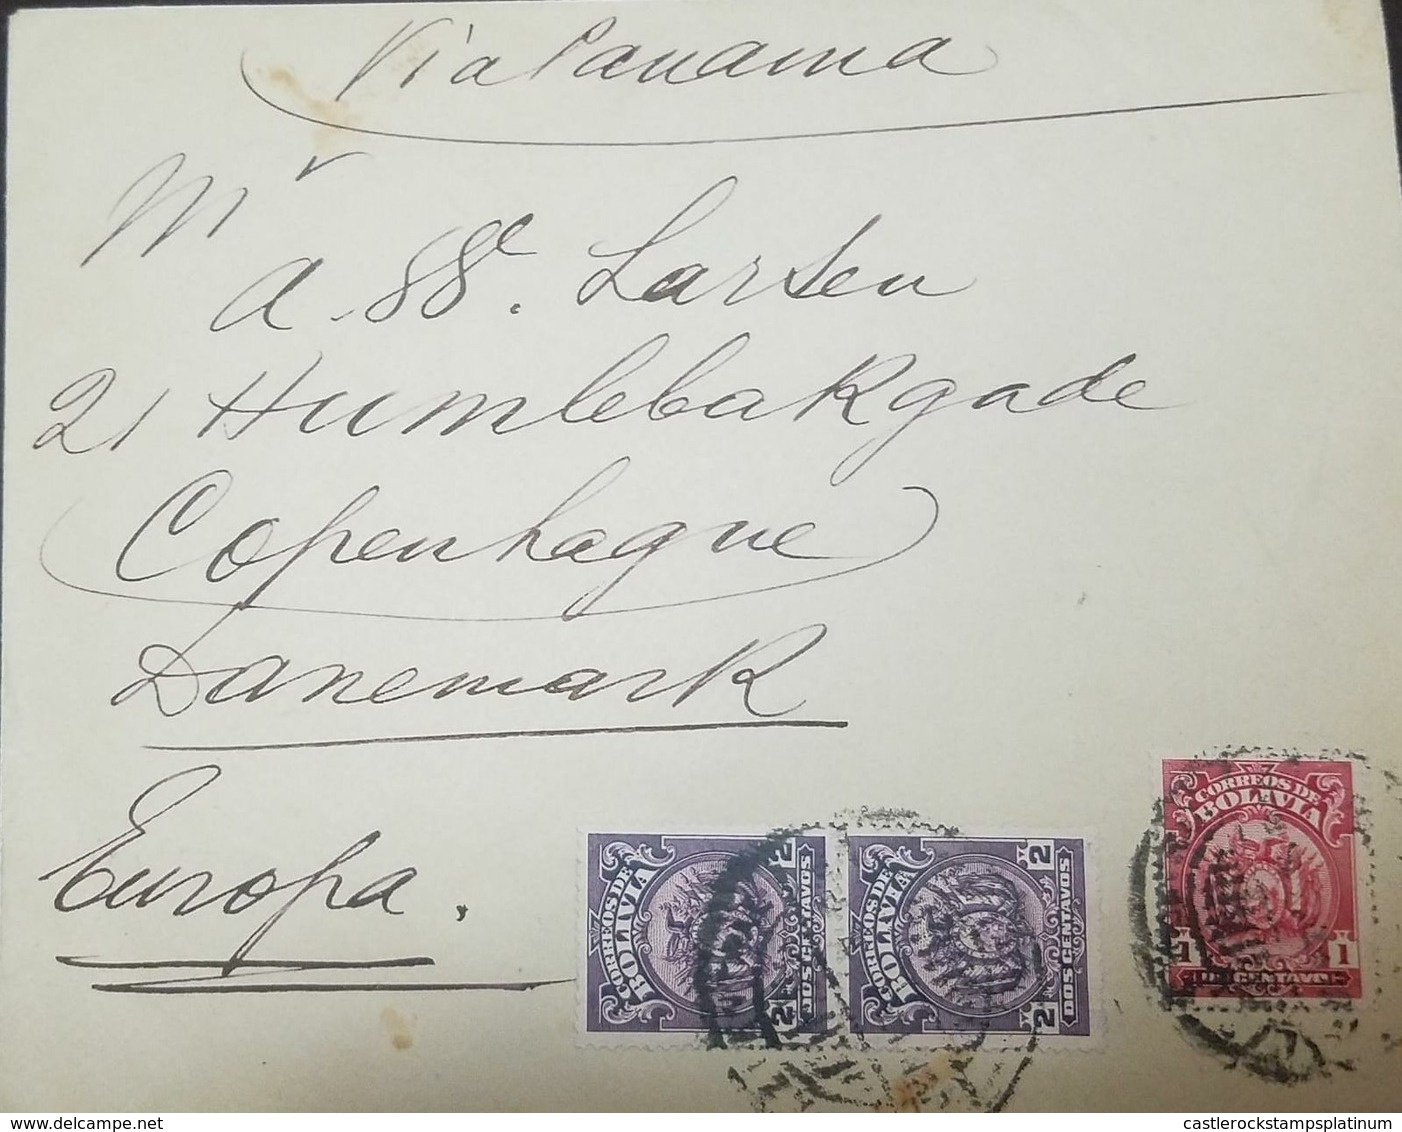 Via Panama
Mr
A. SSe. Larsen
21 HumlebaKgade
Copenhague
DanemarK
Europa.
CORREOS DE
BOLIVIA
2 2
DOS CENTAVOS
CORREOS DE
BOLIVIA
2 2
DOS CENTAVOS
CORREOS DE
BOLIVIA
1 1
castlerockstampsplatinum